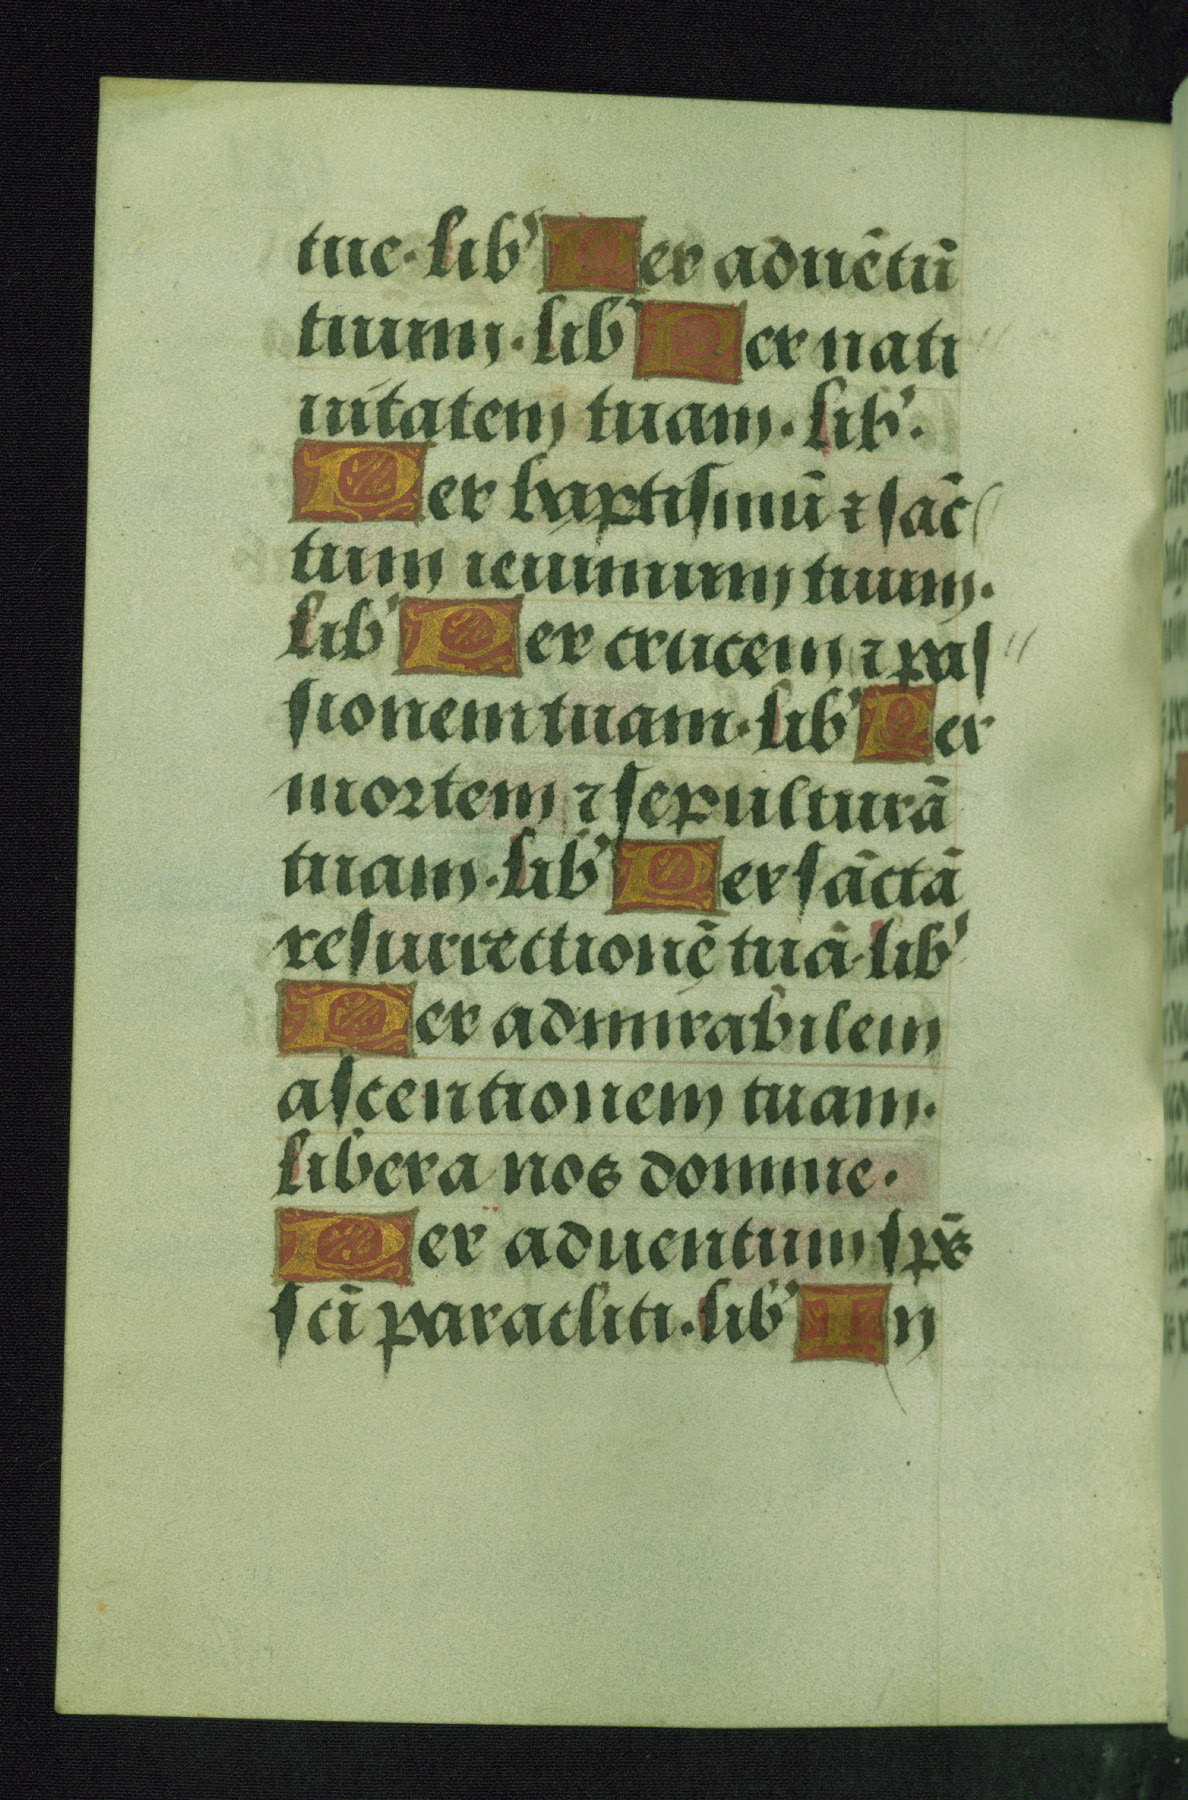 tue· lib' Per aduētū
tuum· lib' Per nati
uitatem tuam· lib'·
Per baptismū ⁊ sāc
tum ieiunium tuum·
lib' Per crucem ⁊ pas
sionem tuam· lib' Per
mortem ⁊ sepulturā
tuam· lib' Per sāctā
resurrectionē tuā· lib'
Per admirabilem
ascentionem tuam·
libera nos domine·
Per aduentum sp̄s
sc̄i paracliti· lib' In